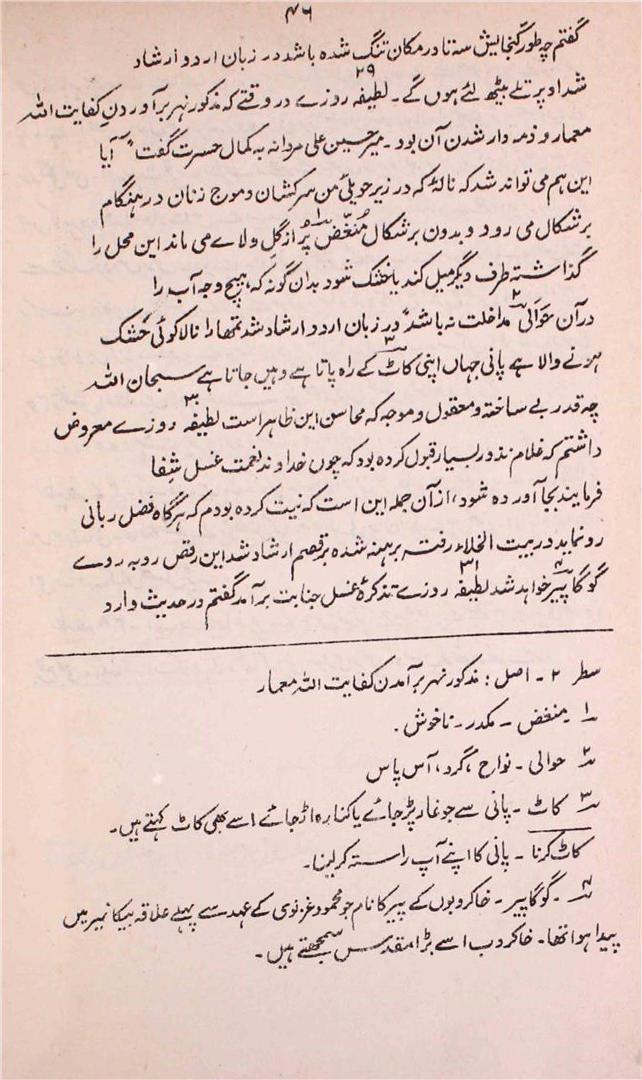 ۴۶
گفتم چہ طور گنجایش سہ تا در مکان تنگ شدہ باشد در زبان اردو ارشاد
شد اوپر تلے بیٹھ لئے ہوں گے۔ لطیفہ ۲۹ روزے در وقتے کہ مذکور نہر بر آوردن کفایت اللہ
معمار و ذمہ دار شدن آن بود۔ میر حسین علی مردانہ بہ کمال حسرت گفت " آیا
این ہم می تواند شد کہ نالۂ کہ در زیر حویلئ من سرکشان و موج زنان در ہنگام
برشکال می رود و بدون برشکال مُنَغّض ۱ پُر از گلِ ولاے می ماند این محل را
گذاشتہ طرف دیگر میل کند یا خشک شود بدان گونہ کہ، ہیچ وجہ آب را
در آن حَوَالیٔ ۲ مداخلت نہ باشد" در زبان اردو ارشاد شد تمھارا نالا کوئی خشک
ہونے والا ہے پانی جہاں اپنی کاٹ ۳ کے راہ پاتا ہے وہیں جاتا ہے سبحان اللہ
چہ قدر بے ساختہ و معقول و موجہ کہ محاسن این ظاہر است لطیفہ ۳۰ روزے معروض
داشتم کہ غلام نذور بسیار قبول کردہ بود کہ چوں خداوند نعمت غسل شِفا
فرمایند بجا آوردہ شود، از آن جملہ این است کہ نیت کردہ بودم کہ ہرگاہ فضل ربانی
رونماید در بیت الخلاء رفتہ برہنہ شدہ برقصم ارشاد شد این رقص روبہ روے
گوگا پیر ۴ خواہد شد لطیفہ ۳۱ روزے تذکرۂ غسل جنابت بر آمد گفتم در حدیث وارد
سطر ۲۔ اصل : مذکور نہر بر آمدن کفایت اللہ معمار
۱ منغض۔ مکدر۔ ناخوش۔
۲ حوالی۔ نواح، گرد، آس پاس
۳ کاٹ۔ پانی سے جو غار پڑ جائے یا کنارہ اڑ جائے اسے بھی کاٹ کہتے ہیں۔
کاٹ کرنا۔ پانی کا اپنے آپ راستہ کر لینا۔
۴۔ گوگا پیر۔ خاکروبوں کے پیر کا نام جو محمود غزنوی کے عہد سے پہلے علاقہ بیکانیر میں
پیدا ہوا تھا۔ خاکروب اسے بڑا مقدس سمجھتے ہیں۔